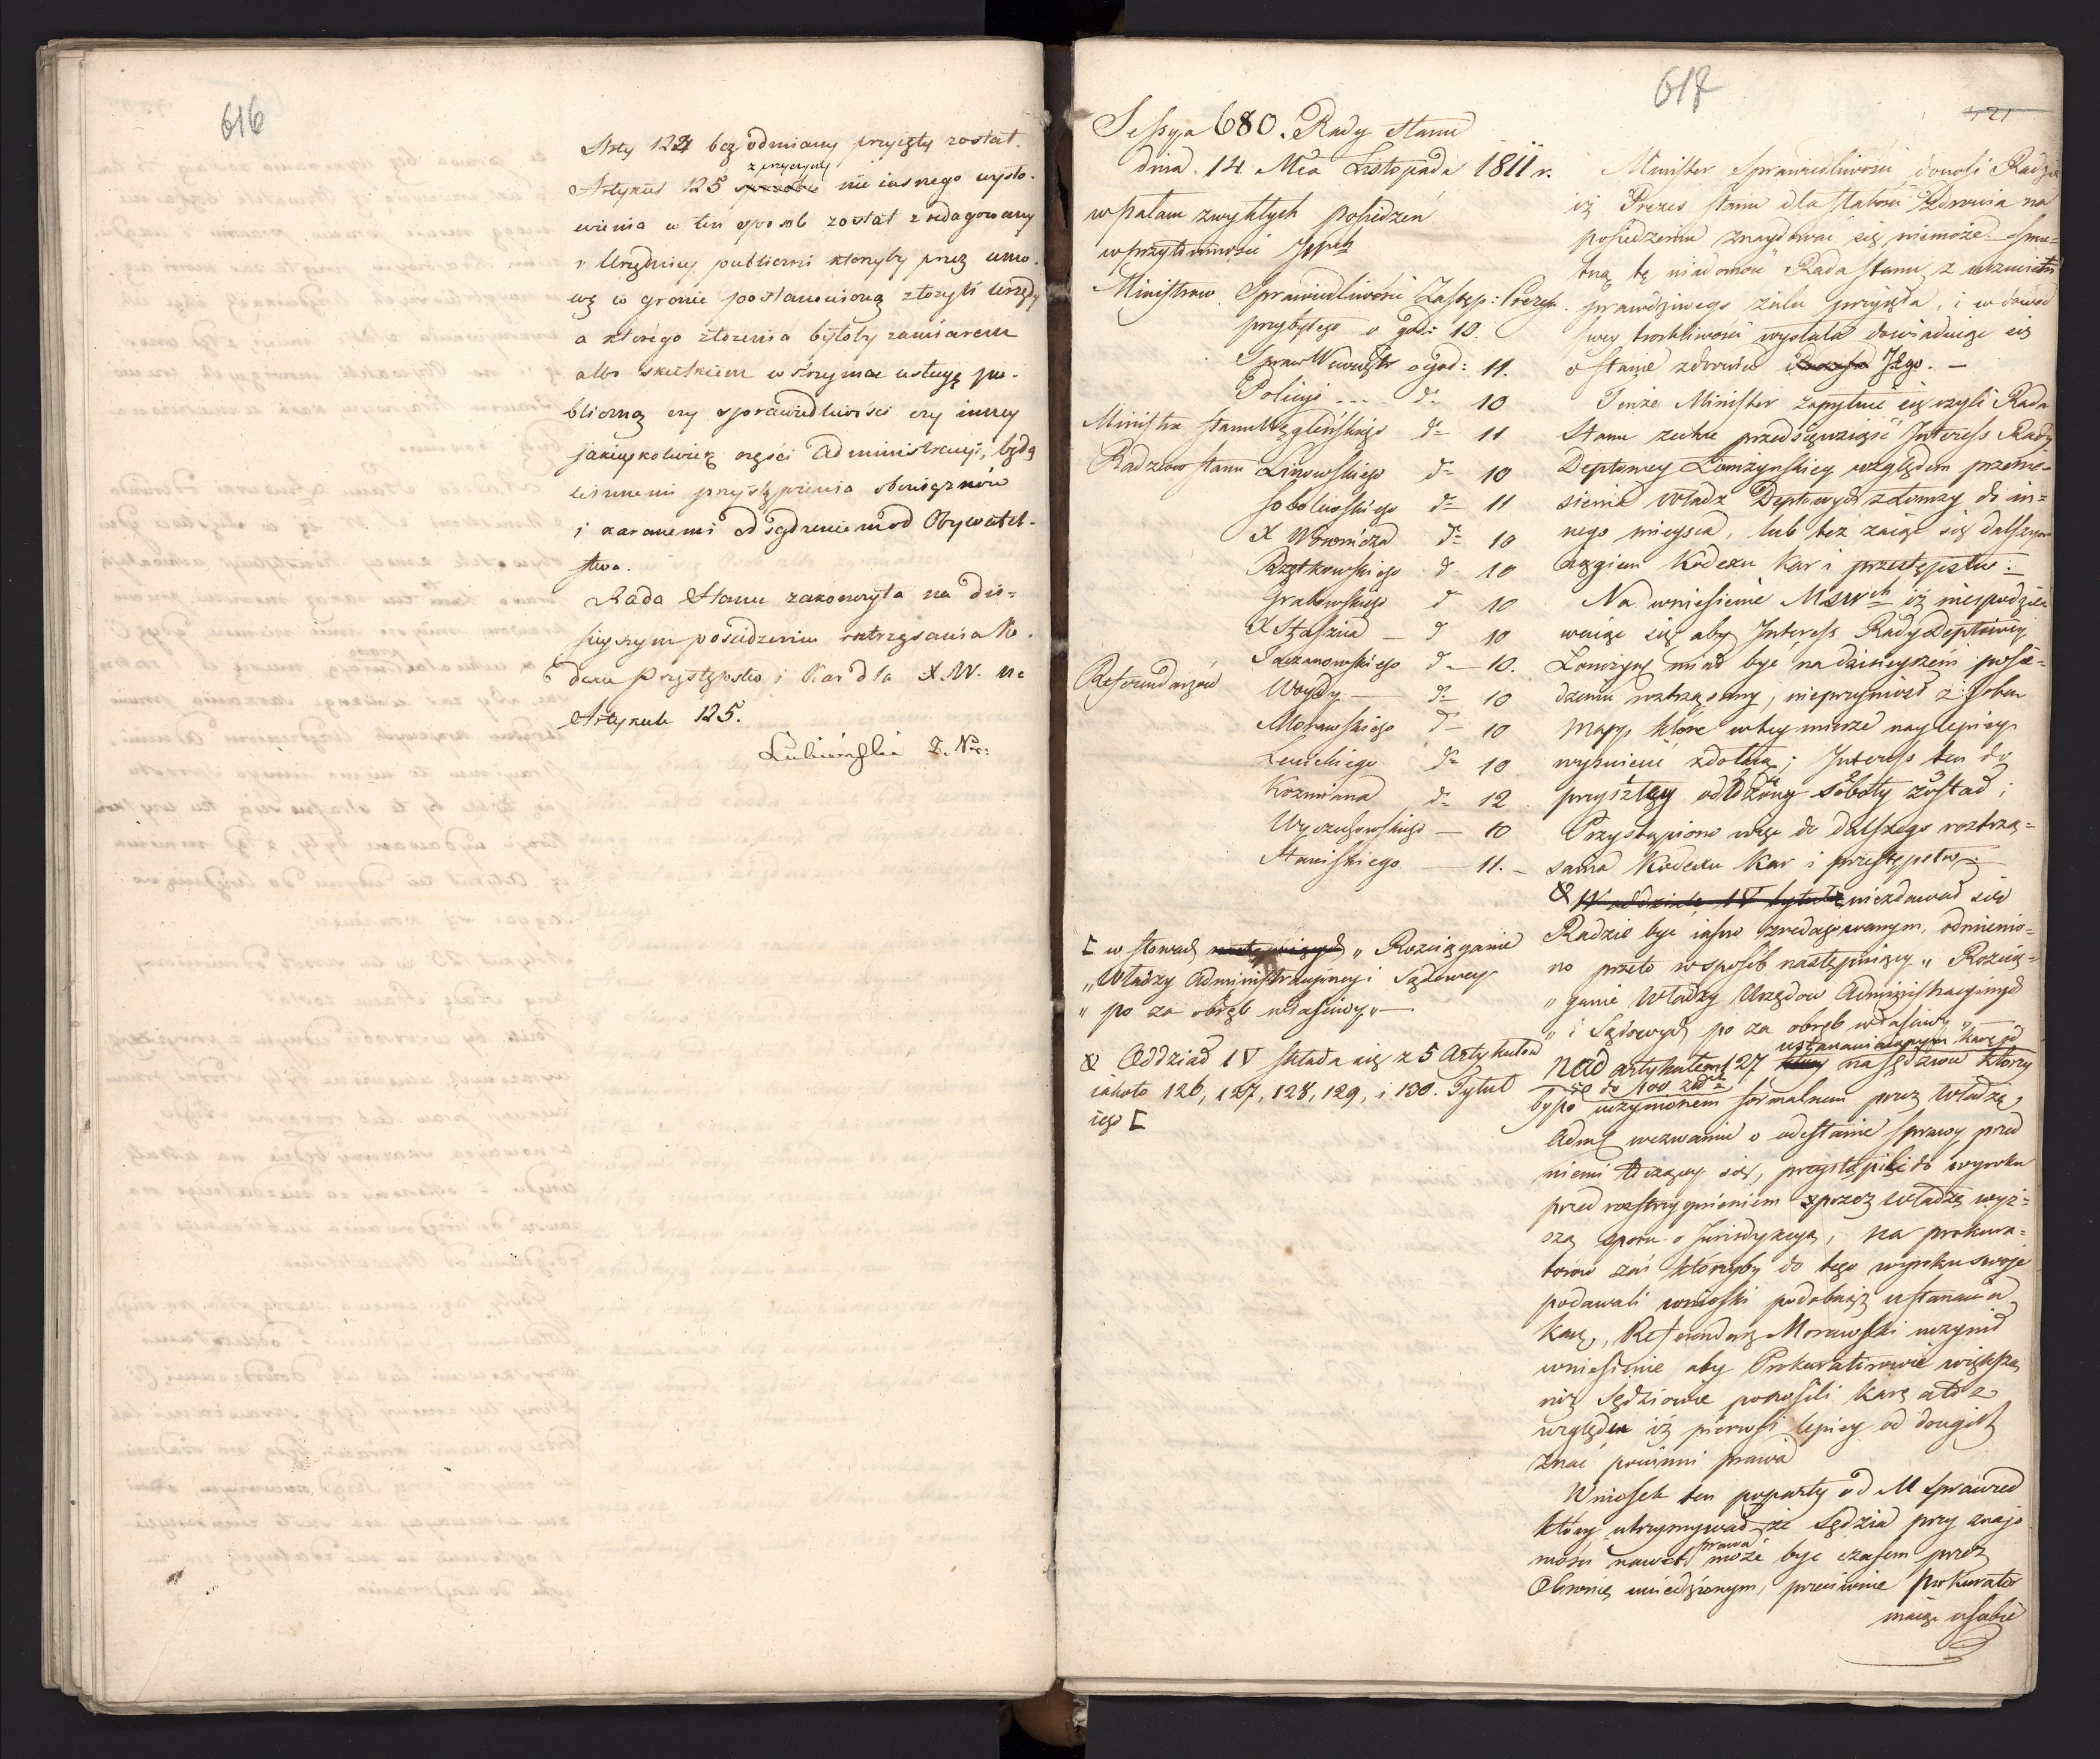 616
Arty 124 bez odmiany przyięty został.
z przyczyny
Artykuł 125 nie iasnego wysło-
wienia w ten sposob został zredagowany
„ Urzędnicy publiczni ktorzyby przez umo-
wę w gronie postanowioną złożyli urzędy
a ktorego złożenia byłoby zamiarem
albo skutkiem wstrzymać usługę pu-
bliczną czy sprawiedliwości czy inney
jakieykolwiek części Administracyi, będą
winnemi przestąpienia obowiązków
i karanemi odsądzeniem od Obywatel-
stwa.
Rada Stanu zakończyła na dzi-
sieyszym posiedzeniu roztrząsania Ko-
dexu Przestępstw i Kar dla X. W. na
Artykule 125.
Lubieński Z. Nr:
617
421
Sessya 680. Rady Stanu
dnia 14. Mca Listopada 1811 r.
w pałacu zwykłych posiedzeń
w przytomności JJPch
Ministrow Sprawiedliwości Zastęp: Prezesa
przybyłego o godz: 10.
Spraw Wewnętr o god: 11.
Policyi ... d- 10
Ministra Stanu Węgleńskiego d- 11
Radzcow Stanu Linowskiego d- 10
Sobolewskiego d- 11
X Woronicza d- 10
Rzętkowskiego d 10
Grabowskiego d 10
X Staszica d 10
Taczanowskiego d- 10.
Referendarzow Woydy d- 10
Morawskiego d- 10
Lewickiego d- 10
Kozmiana d- 12
Wyczechowskiego — 10
Staniskiego — 11. -
[ w słowach następuiących „ Rozciąganie
„ Władzy Administracyiney i Sądowey
„ po za obręb właściwy „ —
& Oddział IV składa się z 5 Artykułow
iakoto 126, 127, 128, 129, i 130. Tytuł
iego [
Minister Sprawiedliwości donosi Radzie
iż Prezes Stanu dla słabości zdrowia na
posiedzeniu znaydować się niemoże. Smu-
tną tę wiadomość Rada Stanu z uczuciem
prawdziwego żalu przyięła, i w dowod
swey troskliwości wysłała dowiaduiąc się
o stanie zdrowia Jego. —
Tenże Minister zapytuie się czyli Rada
Stanu zechce przedsięwziąść Interess Rady
Deptowey Łomżyńskiey względem przenie-
sienia władz Deptowych z Łomży do in-
nego mieysca, lub też zaiąć się dalszym
ciągiem Kodexu Kar i przestępstw. —
Na wniesienie MSWch iż niespodzie-
waiąc się aby Interess Rady Deptowey
Łomżyń miał być na dzisieyszem posie-
dzeniu roztrząsany, nieprzyniosł z sobą
mapp które w tey mierze naylepiey
wyświecić zdołaią; Interess ten do
przyszłey odłożony Soboty został;
Przystąpiono więc do dalszego roztrzą-
sania Kodexu Kar i przestępstw. —
& W oddziale IV tytuł niezdawał się
Radzie być iasno zredagowanym, odmienio-
no przeto w sposób następuiący „ Rozcią-
„ ganie Władzy Urzędow Administracyinych
„ i Sądowych po za obręb właściwy „ —
ustanawiaiącym karę od
nad artykułem 127 na sędziow którzy
50 do 100 złł
by po uczynionem formalnem przez Władzę
Adm wezwaniu o odesłanie sprawy przed
niemi toczącey się, przystąpili do wyroku
przed rozstrzygnieniem przez władzę wyż-
szą sporu o Jurisdykcyą, na prokura-
torow zaś którzyby do tego wyroku swoje
podawali wnioski podobnąż ustanawia
karę, Referendarz Morawski uczynił
wniesienie aby Prokuratorowie większą
niż Sędziowie ponosili karę a to z
względu iż pierwsi lepiey od drugich
znać powinni prawa
Wniosek ten poparty od M Sprawied
który utrzymywał że Sędzia przy znajo
prawa
mości nawet może być czasem przez
Obronę uwiedzionym, przeciwnie prokurator
maiąc u siebie